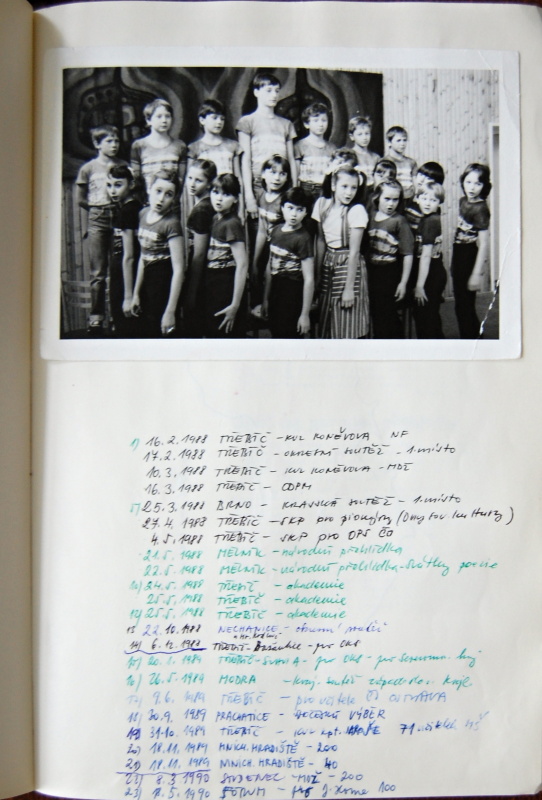 1) 16.2.1988 TŘEBÍČ - KVL KONĚVOVA NF
17.2.1988 TŘEBÍČ - OKRESNÍ SOUTĚŽ - 1. místo
10.3.1988 TŘEBÍČ - KVL KONĚVOVA - MDŽ
16.3.1988 TŘEBÍČ - ODPM
5) 25.3.1988 BRNO - KRAJSKÁ SOUTĚŽ - 1. místo
27.4.1988 TŘEBÍČ - SKP pro pionýry (Dny kultury)
4.5.1988 TŘEBÍČ - SKP PRO OPS
21.5.1988 MĚLNÍK - národní přehlídka
22.5.1988 MĚLNÍK - národní přehlídka - Svátky poezie
10) 24.5.1988 TŘEBÍČ - akademie
25.5.1988 TŘEBÍČ - akademie
12) 25.5.1988 TŘEBÍČ - akademie
13 22.10.1988 NECHANICE -
14) 6.12.1988 TŘEBÍČ - Besánka - pro OKS
15) 20.1.1989 TŘEBÍČ - A - pro OKS - pro
16) 26.5.1989 MODRA - kraj
17) 9.6.1989 TŘEBÍČ - pro učitele
18) 30.9.1989 PRACHATICE - VÝBĚR
19) 31.10.1989 TŘEBÍČ - KVL kpt. 71 ZŠ
20) 18.11.1989 MNICH. HRADIŠTĚ - 200
21) 18.11.1989 MNICH. HRADIŠTĚ - 40
22) 8.3.1990 STUDENEC - MDŽ - 200
23) 18.5.1990 FÓRUM - 100